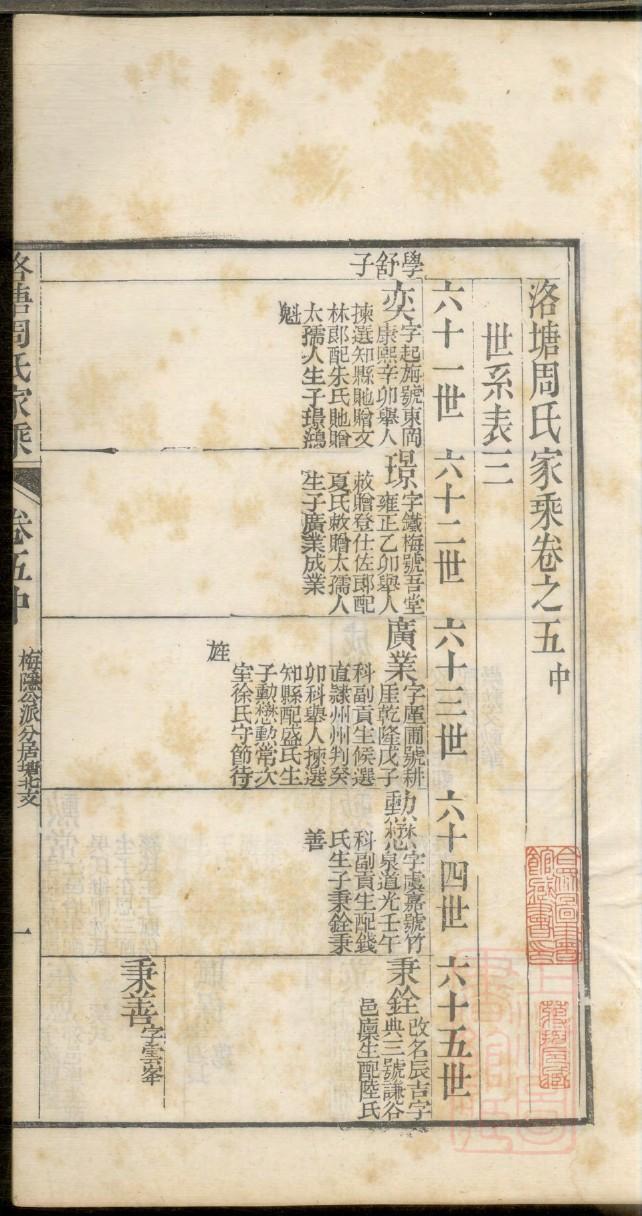 洛塘周氏家乘卷之五中
世系表三
六十一世
六十二世
六十三世
六十四世
六十五世
學舒子
奕
字起旃號東岡
康熙辛卯舉人
揀選知縣貤贈文
林郎配朱氏貤贈
太孺人生子璟鴻
魁
璟
字鐵梅號吾堂
雍正乙卯舉人
敕贈登仕佐郎配
夏氏敕贈太孺人
生子廣業成業
廣業
字厪圃號耕
厓乾隆戊子
科副貢生候選
直隸州州判癸
卯科舉人揀選
知縣配盛氏生
子勳懋勳常次
室徐氏守節待
旌
勳懋
字虞嘉號竹
泉道光壬午
科副貢生配錢
氏生子秉銓秉
善
秉銓
改名辰吉字
典三號謙谷
邑廩生配陸氏
秉善
字雲峯
洛塘周氏家乘
卷五中
梅隱公派分居塘北支
一